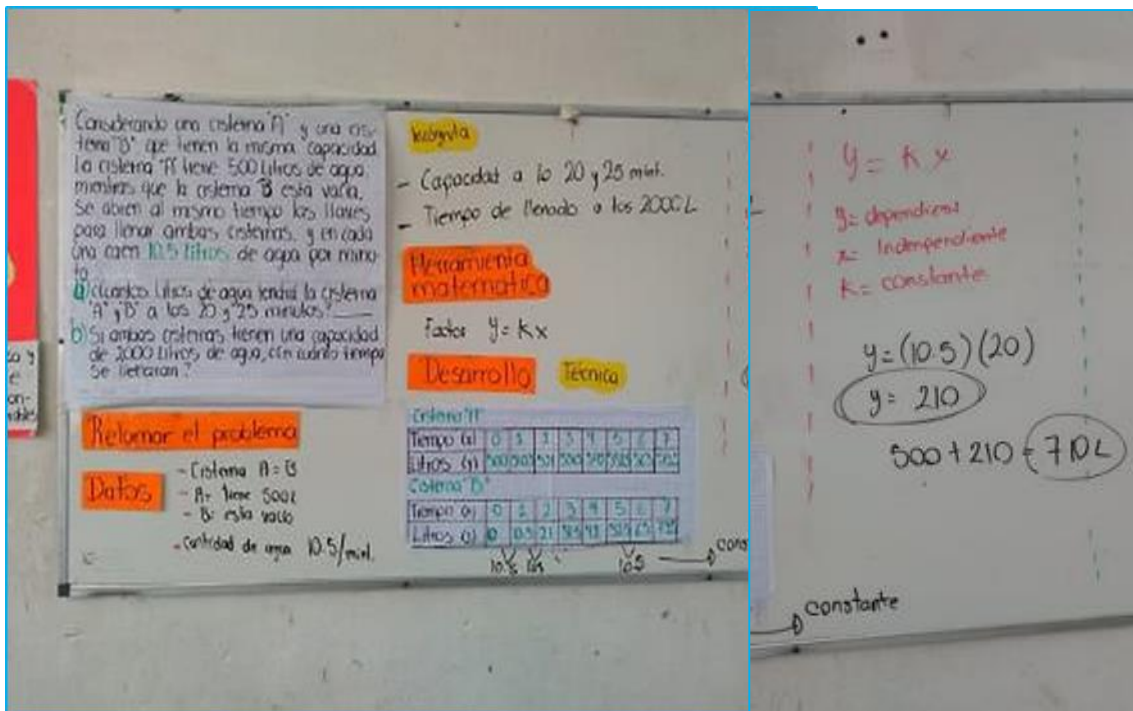 Considerando una cisterna "A" y una cis-
terna "B" que tienen la misma capacidad
la cisterna "A" tiene 500 Litros de agua,
mientras que la cisterna B esta vacía.
Se abren al mismo tiempo las llaves
para llenar ambas cisternas, y en cada
una caen 10.5 litros de agua por minu-
to
a) ¿Cuántos Litros de agua tendrá la cisterna
"A" y "B" a los 20 y 25 minutos?
b) Si ambas cisternas tienen una capacidad
de 2000 Litros de agua, ¿En cuánto tiempo
se llenarán?
Retomar el problema
Datos
- Cisterna A = B
- A= tiene 500L
- B= esta vacio
- Cantidad de agua 10.5/mint.
Incógnita
- Capacidad a lo 20 y 25 mint.
- Tiempo de llenado a los 2000L
Herramienta
matemática
Factor y = kx
Desarrollo Técnica
Cisterna "A"
Tiempo (x) 0 1 2 3 4 5 6 7
Litros (y) 500
Cisterna "B"
Tiempo (x) 0 1 2 3 4 5 6 7
Litros (y) 0 21
10.5 10.5
cons
y = k x
y= dependient
x= Indenpendiente
k= constante
y=(10.5)(20)
y= 210
500+210 = 710L
constante